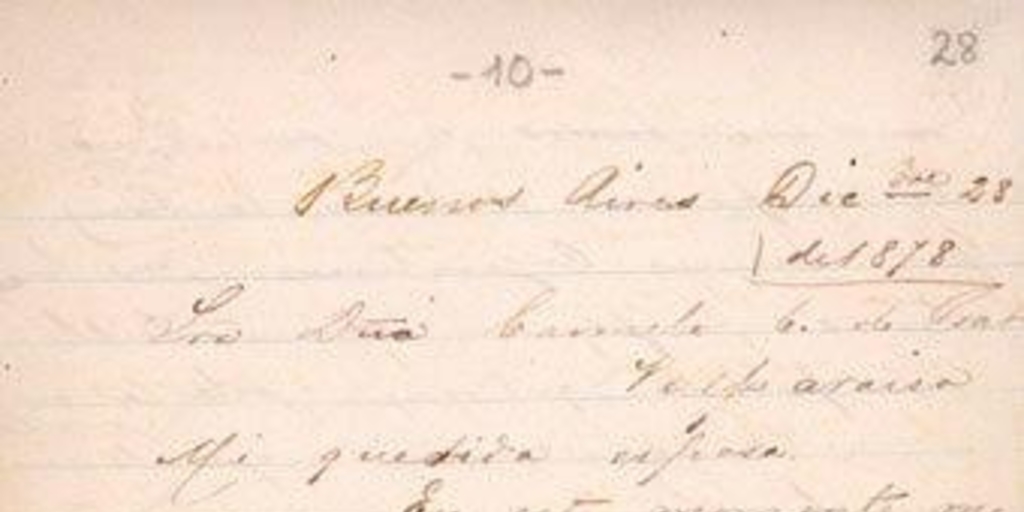 -10-
28
Buenos Aires Dic bre 28
de 1878
Sra Dña Carmela C. de Prat
Valparaiso
Mi querida esposa.
En este momento me